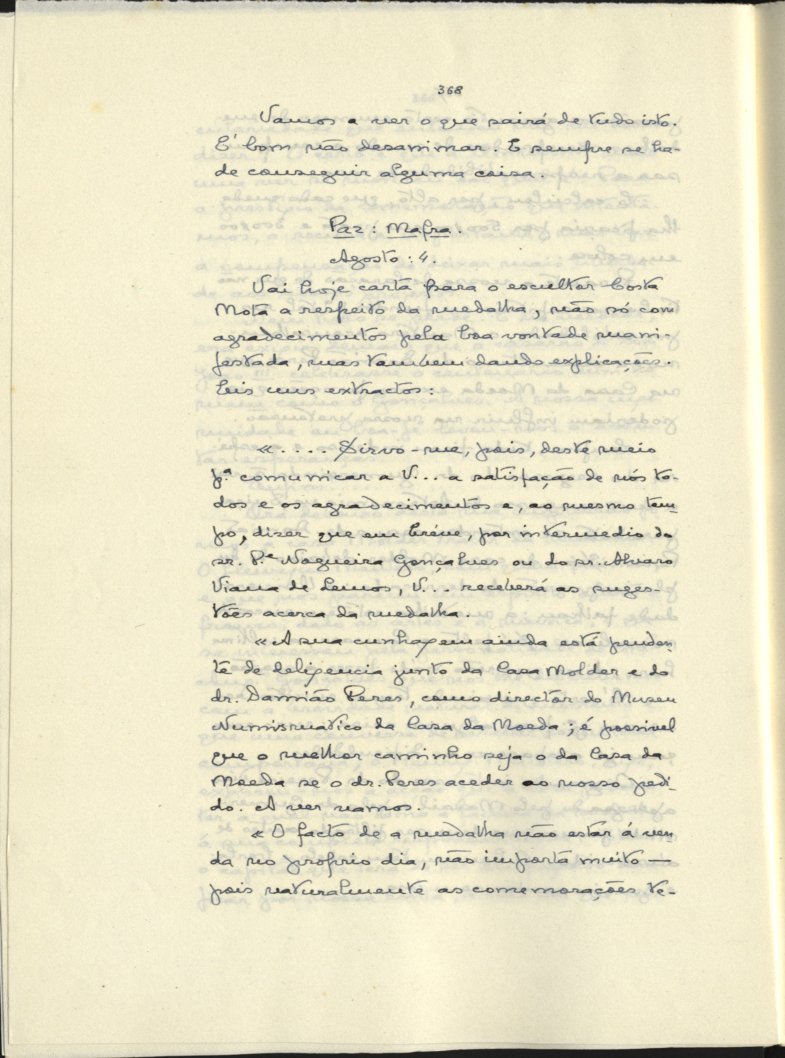 368
Vamos a ver o que sairá de tudo isto.
E' bom não desanimar. E sempre se ha-
de conseguir alguma coisa.
Paz: Mafra.
Agosto: 4.
Vai hoje carta para o escultor Costa
Mota a respeito da medalha, não só com
agradecimentos pela boa vontade mani-
festada, mas tambem dando explicações.
Eis uns extractos:
«.... Sirvo-me, pois, deste meio
p.ª comunicar a V... a satisfação de nós to-
dos e os agradecimentos e, ao mesmo tem-
po, dizer que em bréve, por intermedio do
sr. P.e Nogueira Gonçalves ou do sr. Alvaro
Viana de Lemos, V... receberá as suges-
tões acerca da medalha.
«A sua cunhagem ainda está penden-
te de deligencia junto da Casa Molder e do
dr. Damião Peres, como director do Museu
Numismatico da Casa da Moeda; é possivel
que o melhor caminho seja o da Casa da
Moeda se o dr. Peres aceder ao nosso pedi-
do. A ver vamos.
«O facto de a medalha não estar á ven
da no proprio dia, não importa muito —
pois naturalmente as comemorações te-